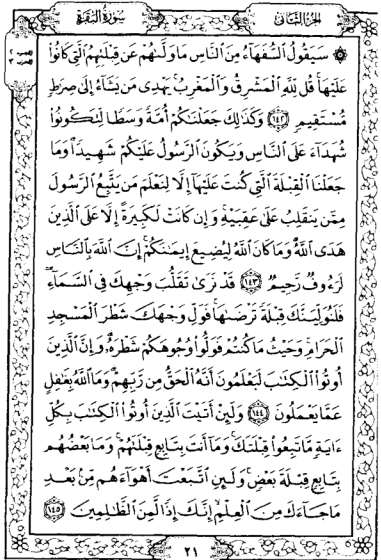 الجزء الثاني
سورة البقرة
۞ سَيَقُولُ السُّفَهَاءُ مِنَ النَّاسِ مَا وَلَّىٰهُمْ عَن قِبْلَتِهِمُ الَّتِي كَانُوا
عَلَيْهَا قُل لِّلَّهِ الْمَشْرِقُ وَالْمَغْرِبُ يَهْدِي مَن يَشَاءُ إِلَىٰ صِرَٰطٍ
مُّسْتَقِيمٍ ١٤٢ وَكَذَٰلِكَ جَعَلْنَٰكُمْ أُمَّةً وَسَطًا لِّتَكُونُوا
شُهَدَاءَ عَلَى النَّاسِ وَيَكُونَ الرَّسُولُ عَلَيْكُمْ شَهِيدًا وَمَا
جَعَلْنَا الْقِبْلَةَ الَّتِي كُنتَ عَلَيْهَا إِلَّا لِنَعْلَمَ مَن يَتَّبِعُ الرَّسُولَ
مِمَّن يَنقَلِبُ عَلَىٰ عَقِبَيْهِ وَإِن كَانَتْ لَكَبِيرَةً إِلَّا عَلَى الَّذِينَ
هَدَى اللَّهُ وَمَا كَانَ اللَّهُ لِيُضِيعَ إِيمَٰنَكُمْ إِنَّ اللَّهَ بِالنَّاسِ
لَرَءُوفٌ رَّحِيمٌ ١٤٣ قَدْ نَرَىٰ تَقَلُّبَ وَجْهِكَ فِي السَّمَاءِ
فَلَنُوَلِّيَنَّكَ قِبْلَةً تَرْضَىٰهَا فَوَلِّ وَجْهَكَ شَطْرَ الْمَسْجِدِ
الْحَرَامِ وَحَيْثُ مَا كُنتُمْ فَوَلُّوا وُجُوهَكُمْ شَطْرَهُ وَإِنَّ الَّذِينَ
أُوتُوا الْكِتَٰبَ لَيَعْلَمُونَ أَنَّهُ الْحَقُّ مِن رَّبِّهِمْ وَمَا اللَّهُ بِغَٰفِلٍ
عَمَّا يَعْمَلُونَ ١٤٤ وَلَئِنْ أَتَيْتَ الَّذِينَ أُوتُوا الْكِتَٰبَ بِكُلِّ
ءَايَةٍ مَّا تَبِعُوا قِبْلَتَكَ وَمَا أَنتَ بِتَابِعٍ قِبْلَتَهُمْ وَمَا بَعْضُهُم
بِتَابِعٍ قِبْلَةَ بَعْضٍ وَلَئِنِ اتَّبَعْتَ أَهْوَاءَهُم مِّن بَعْدِ
مَا جَاءَكَ مِنَ الْعِلْمِ إِنَّكَ إِذًا لَّمِنَ الظَّٰلِمِينَ ١٤٥
٢١